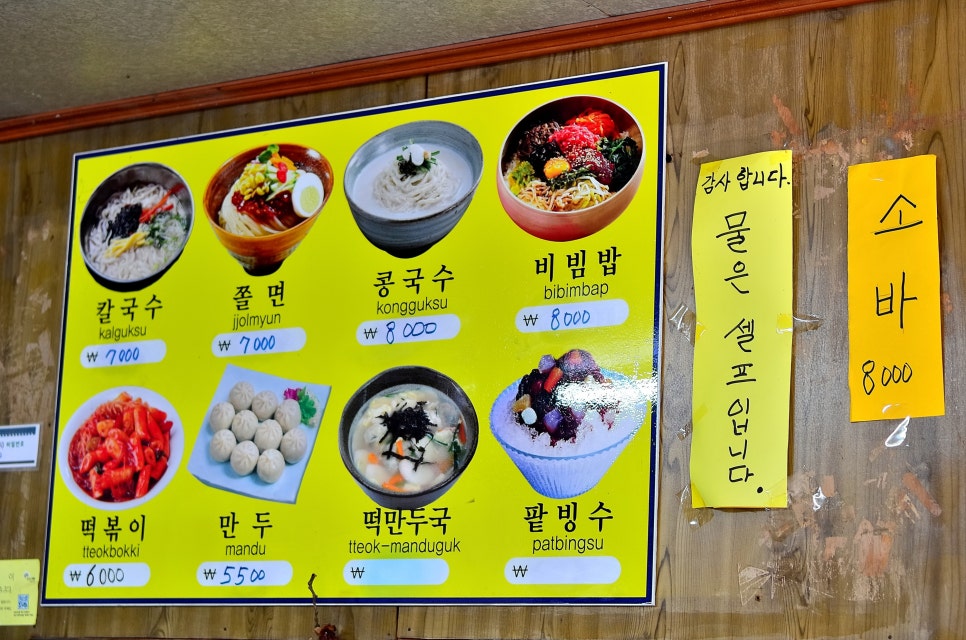 칼국수
kalguksu
₩ 7000
쫄면
jjolmyun
₩ 7000
콩국수
kongguksu
₩ 8000
비빔밥
bibimbap
₩ 8000
떡볶이
tteokbokki
₩ 6000
만두
mandu
₩ 5500
떡만두국
tteok-manduguk
₩
팥빙수
patbingsu
₩
감사합니다.
물은 셀프입니다.
소바
8000